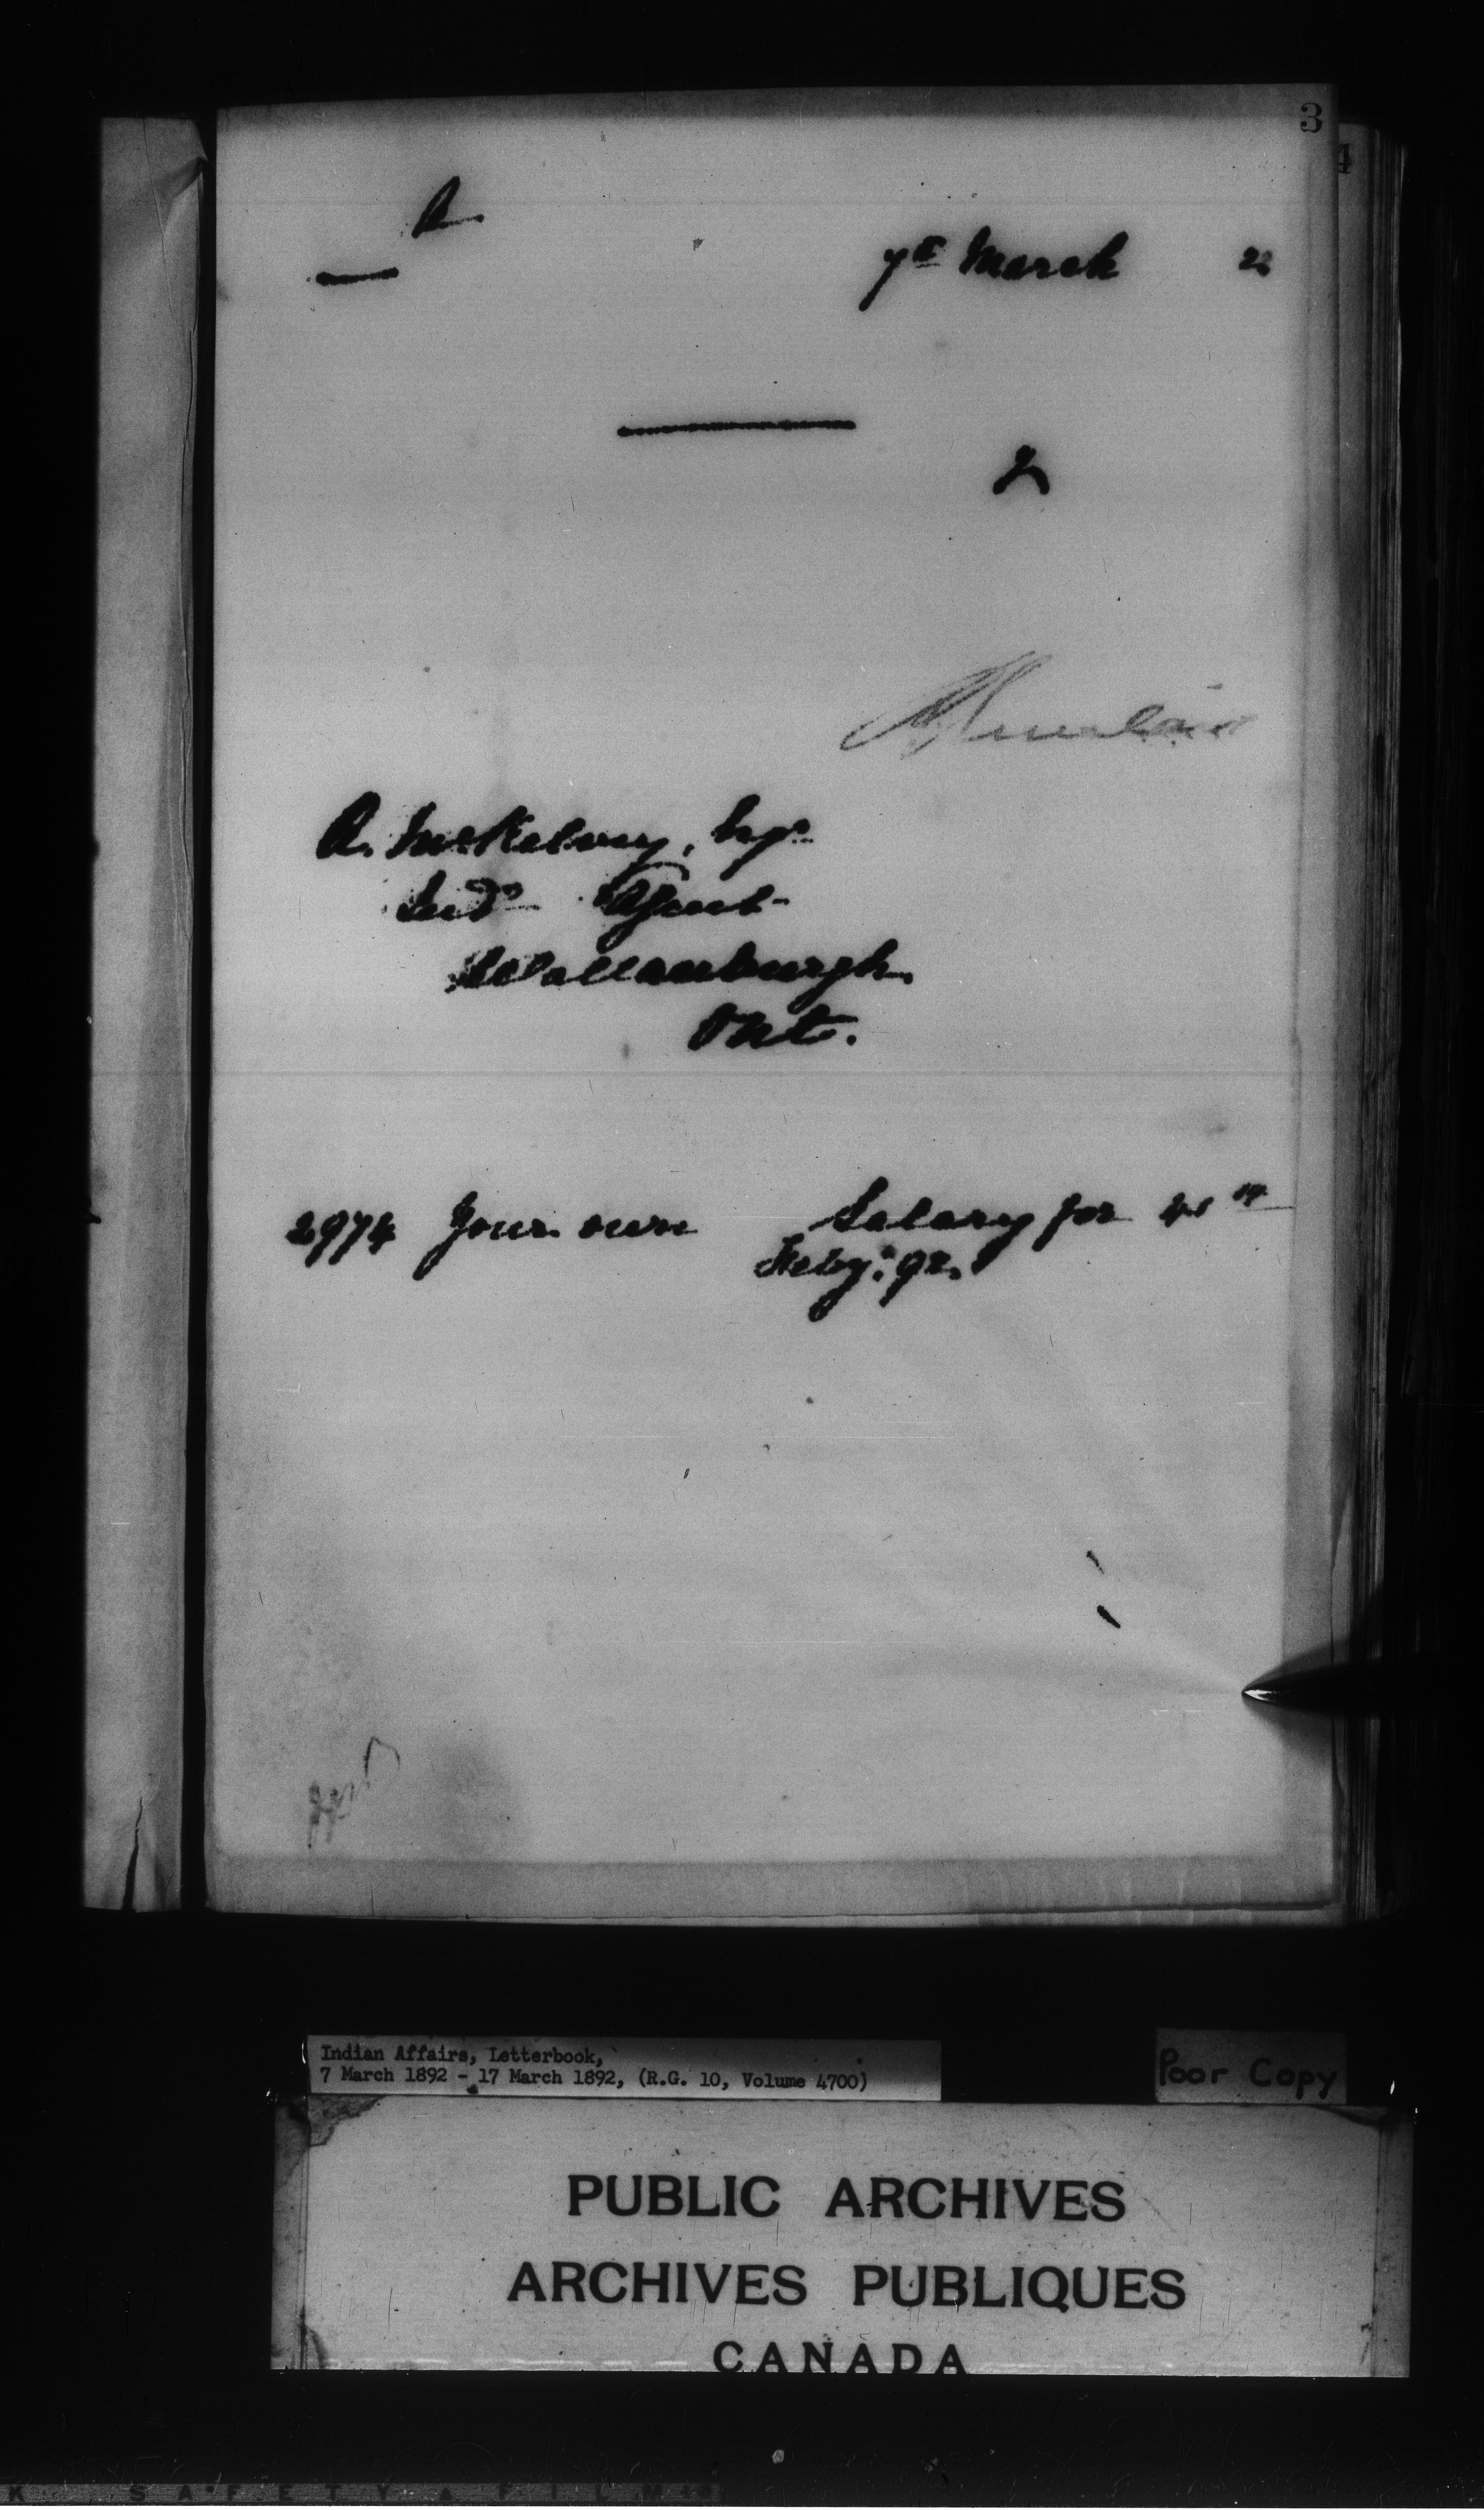 3
4
A
7th March 92
2
A. McKelvey, Esqr
Indn Agent
Wallaceburgh,
Ont.
2974 Your own Salary for
Feby: 92.
Indian Affairs, Letterbook,
7 March 1892 - 17 March 1892, (R.G. 10, Volume 4700)
Poor Copy
PUBLIC ARCHIVES
ARCHIVES PUBLIQUES
CANADA
SAFETY FILM